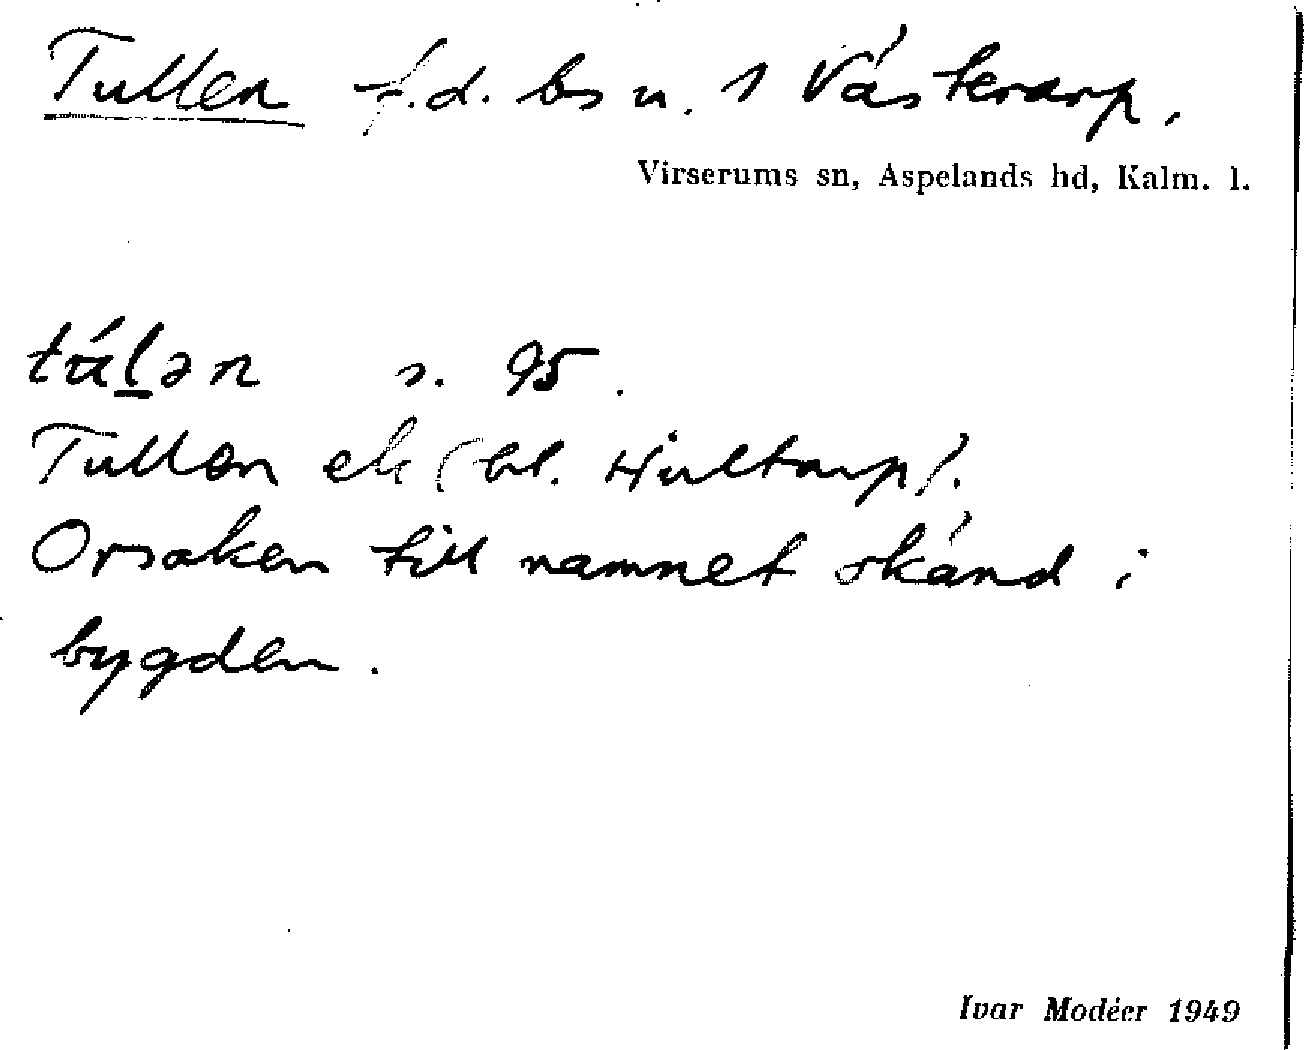 Tullen f.d. bs u. 1 Västerarp.
Virserums sn, Aspelands hd, Kalm. l.
tálən s. 95.
Tullen ek (bl. Hultarp).
Orsaken till namnet okänd i
bygden.
Ivar Modéer 1949